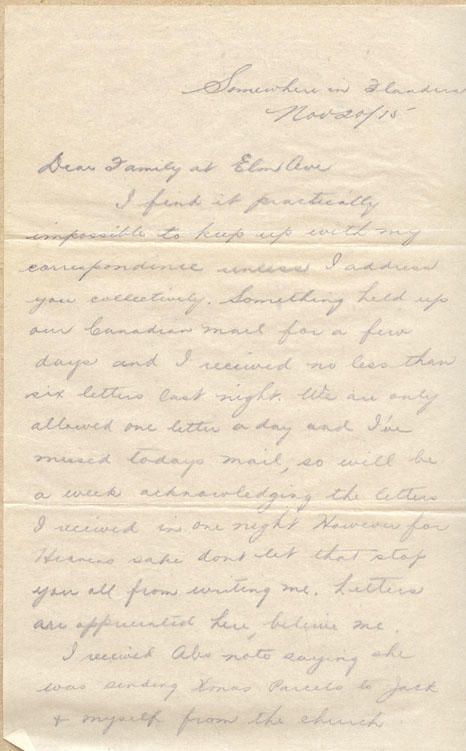 Somewhere in Flanders
Nov 20/15
Dear Family at Elm Ave
I find it practically
impossible to keep up with my
correspondince unless I address
you collectively. Something held up
our Canadian mail for a few
days and I received no less than
six letters last night. We are only
allowed one letter a day and I've
missed todays mail, so will be
a week acknowledging the letters
I received in one night However for
Heavens sake dont let that stop
you all from writing me. Letters
are appreciated here, believe me.
I received Abs note saying she
was sending Xmas Parcels to Jack
& myself from the church